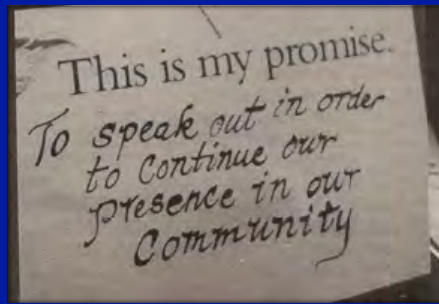 This is my promise.
To speak out in order
to Continue our
presence in our
Community